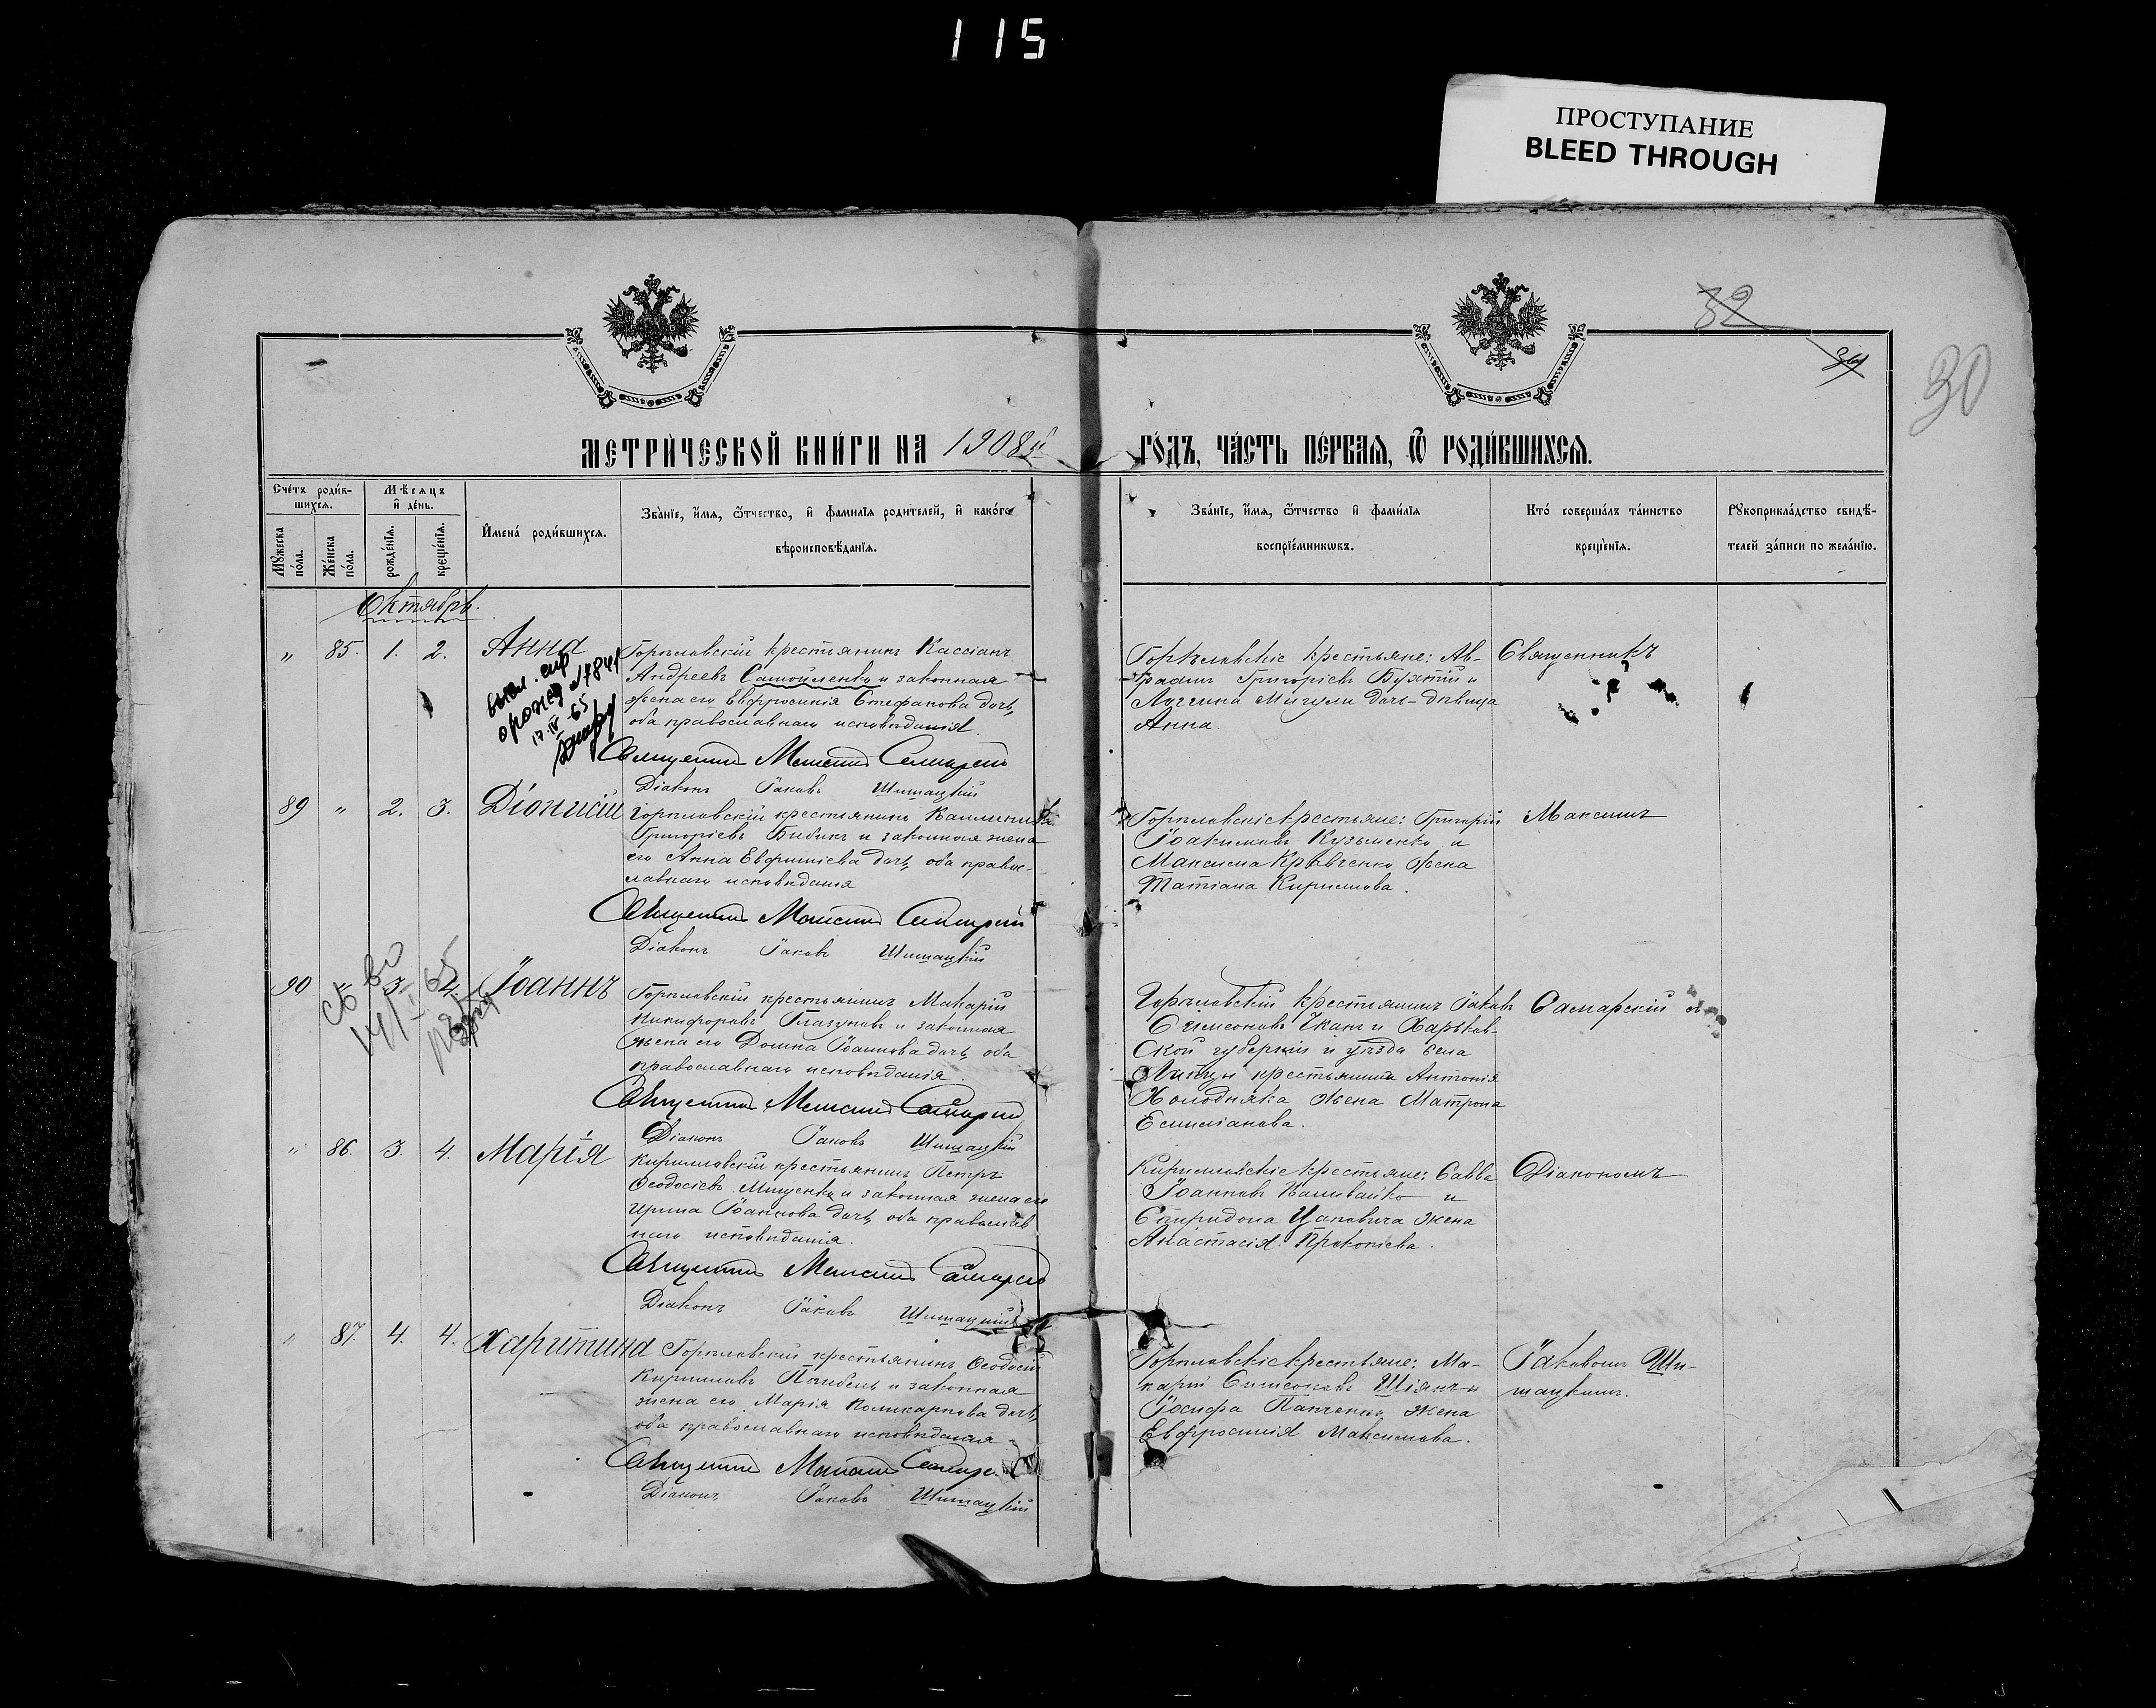 115
ПРОСТУПАНИЕ
BLEED THROUGH
32
34
30
МЕТРИ́ЧЕСКОЙ КНИ́ГИ НА 1908й ГО́ДЪ, ЧА́СТЬ ПЕ́РВАѦ, Ѿ РОДИ́ВШИХСѦ.
Сче́тъ роди́в-
шихсѧ.
Мѣ́сѧцъ
и҆ де́нь.
Мꙋ́жеска по́ла.
Же́нска по́ла.
рожде́нїѧ.
креще́нїѧ.
И҆мена̀ роди́вшихсѧ.
Зва́нїе, и҆́мѧ, ѻ҆́тчество, и҆ фами́лїѧ роди́телей, и҆ како́гѡ
вѣроисповѣ́данїѧ.
Зва́нїе, и҆́мѧ, ѻ҆́тчество и҆ фами́лїѧ
воспрїе́мникѡвъ.
Кто̀ соверша́лъ та́инство
креще́нїѧ.
Рꙋкоприкла́дство свидѣ́-
телей за́писи по жела́нїю.
Октябрь.
" 85. 1. 2. Анна
Горѣловскій крестьянинъ Кассіанъ
Андреевъ Самойленко и законная
жена его Евфросинія Стефанова дочь,
оба православнаго исповѣданія.
Священникъ Максимъ Самарскій
Діаконъ Іаковъ Шишацкій
Горѣловскіе крестьяне: Ав-
Григоріевъ
дочь-дѣвица
Анна.
Священникъ
17-IV-65
89 " 2. 3. Діонисій
Горѣловскій крестьянинъ Каллиникъ
Григоріевъ Бибикъ и законная жена
его Анна Евфиміева дочь, оба право-
славнаго исповѣданія
Священникъ Максимъ Самарскій
Діаконъ Іаковъ Шишацкій
Горѣловскіе крестьяне: Григорій
Іоакимовъ Кузьменко и
Максима Кравченко жена
Татіана Кириллова.
Максимъ
90 " 3. 4. Іоаннъ
Горѣловскій крестьянинъ Макарій
Никифоровъ Глазуновъ и законная
жена его Домна Іоаннова дочь, оба
православнаго исповѣданія.
Священникъ Максимъ Самарскій
Діаконъ Іаковъ Шишацкій
Горѣловскій крестьянинъ Іаковъ
Сѵмеоновъ Ткачъ и Харьков-
ской губерніи и уѣзда села
Липцы крестьянина Антонія
Холодняка жена Матрона
Емиліанова.
Самарскій съ
" 86. 3. 4. Марія
Кирилловскій крестьянинъ Петръ
Ѳеодосіевъ Мищенко и законная жена его
Ирина Іоаннова дочь, оба православ
наго исповѣданія.
Священникъ Максимъ Самарскій
Діаконъ Іаковъ Шишацкій
Кирилловскіе крестьяне: Савва
Іоанновъ Наливайко и
Спиридона Цаповича жена
Анастасія Прокопіева.
Діакономъ
" 87. 4. 4. Харитина
Горѣловскій крестьянинъ Ѳеодосій
Кирилловъ и законная
жена его Марія Поликарпова дочь,
оба православнаго исповѣданія
Священникъ Максимъ
Діаконъ Іаковъ Шишацкій
Горѣловскіе крестьяне: Ма-
карій Симеоновъ Шіянъ и
Іосифа Панченко жена
Евфросинія Максимова.
Іаковомъ Ши-
шацкимъ.